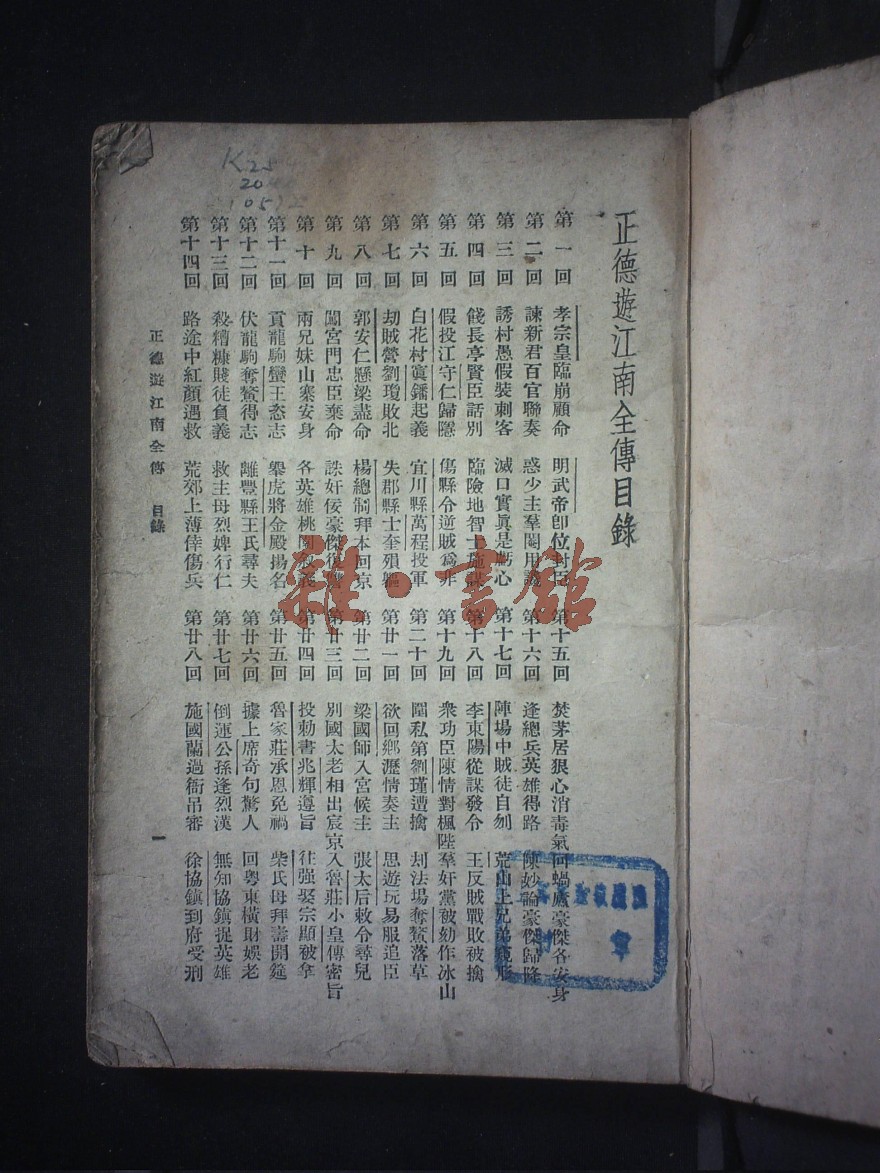 正德遊江南全傳目錄
第一回 孝宗皇臨崩顧命 明武帝卽位封臣
第二回 諫新君百官聯奏 惑少主羣閹用
第三回 誘村愚假裝刺客 滅口實眞是虧心
第四回 餞長亭賢臣話別 臨險地智士施謀
第五回 假投江守仁歸隱 傷縣令逆賊爲非
第六回 白花村寘鐇起義 宜川縣萬程投軍
第七回 劫賊營劉瓊敗北 失郡縣士奎殞軀
第八回 郭安仁懸梁盡命 楊總制拜本回京
第九回 闖宮門忠臣棄命 誅奸佞豪傑
第十回 兩兄妹山寨安身 各英雄桃園敘義
第十一回 貢龍駒蠻王恣志 舉虎將金殿揚名
第十二回 伏龍駒奪鰲得志 離豐縣王氏尋夫
第十三回 殺糟糠賤徒負義 救主母烈婢行仁
第十四回 路途中紅顏遇救 荒郊上薄倖傷兵
第十五回 焚茅居狠心消毒氣 回蝸廬豪傑各安身
第十六回 逢總兵英雄得路 陳妙論豪傑歸降
第十七回 陣場中賊徒自刎 荒山上兄弟
第十八回 李東陽從謀發令 王反賊戰敗被擒
第十九回 衆功臣陳情對楓陛 羣奸黨被劾作冰山
第二十回 圍私第劉瑾遭擒 刦法場奪鰲落草
第廿一回 欲回鄉瀝情奏主 思遊玩易服追臣
第廿二回 梁國師入宮候主 張太后敕令尋兒
第廿三回 別國太老相出宸京 入魯莊小皇傳密旨
第廿四回 投勅書兆輝遵旨 往强娶宗顯被拿
第廿五回 魯家莊承恩免禍 柴氏母拜壽開筵
第廿六回 據上席奇句驚人 回粵東橫財娛老
第廿七回 倒運公孫逢烈漢 無知協鎮捉英雄
第廿八回 施國蘭過衙吊審 徐協鎮到府受刑
正德遊江南全傳 目錄 一
K25
20
1059
雜·書館